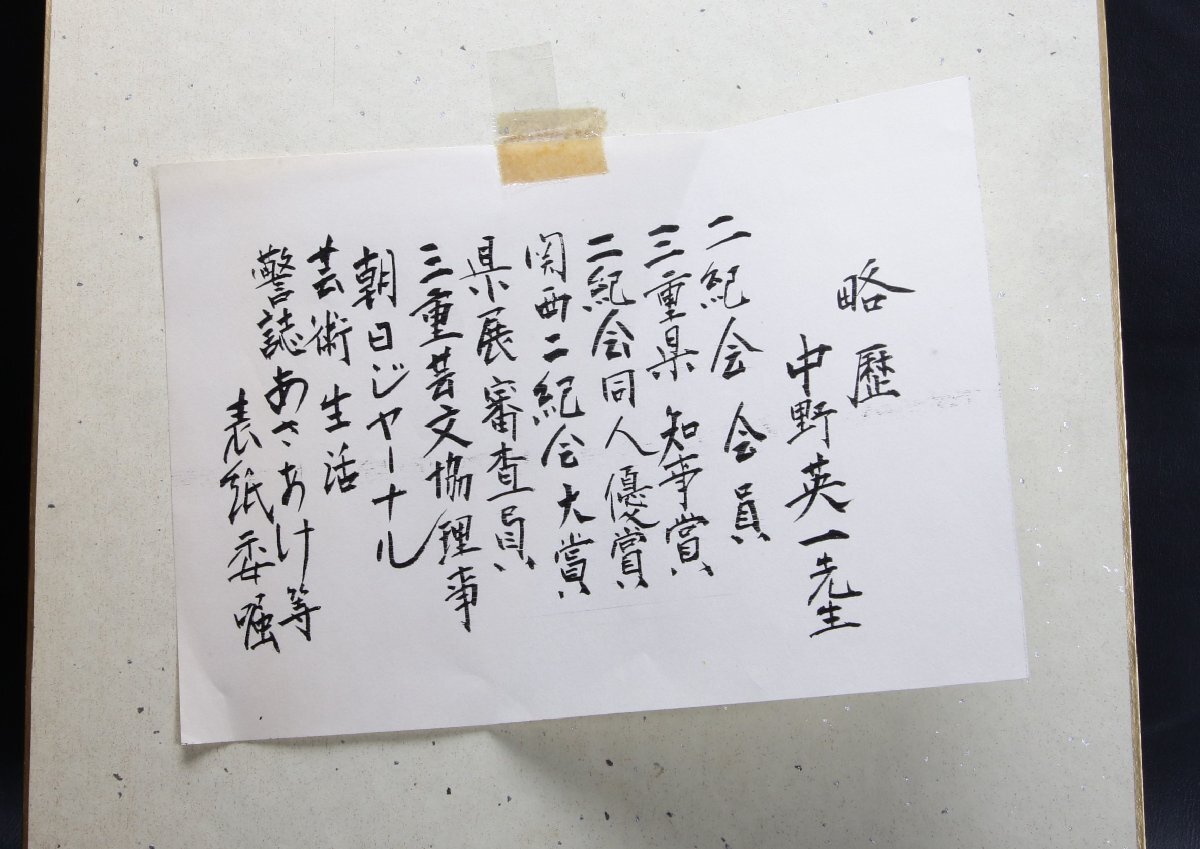 略歴
中野英一先生
二紀会会員
三重県知事賞
二紀会同人優賞
関西二紀会大賞
県展審査員
三重芸文協理事
朝日ジャーナル
芸術生活
警誌あさあけ等
表紙委嘱